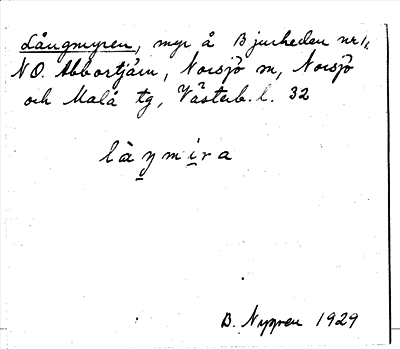 Långmyren, myr å Bjurheden nr 1,
NO. Abbortjärn, Norsjö sn, Norsjö
och Malå tg, Västerb. l. 32
làŋmi̱ra
B. Nygren 1929